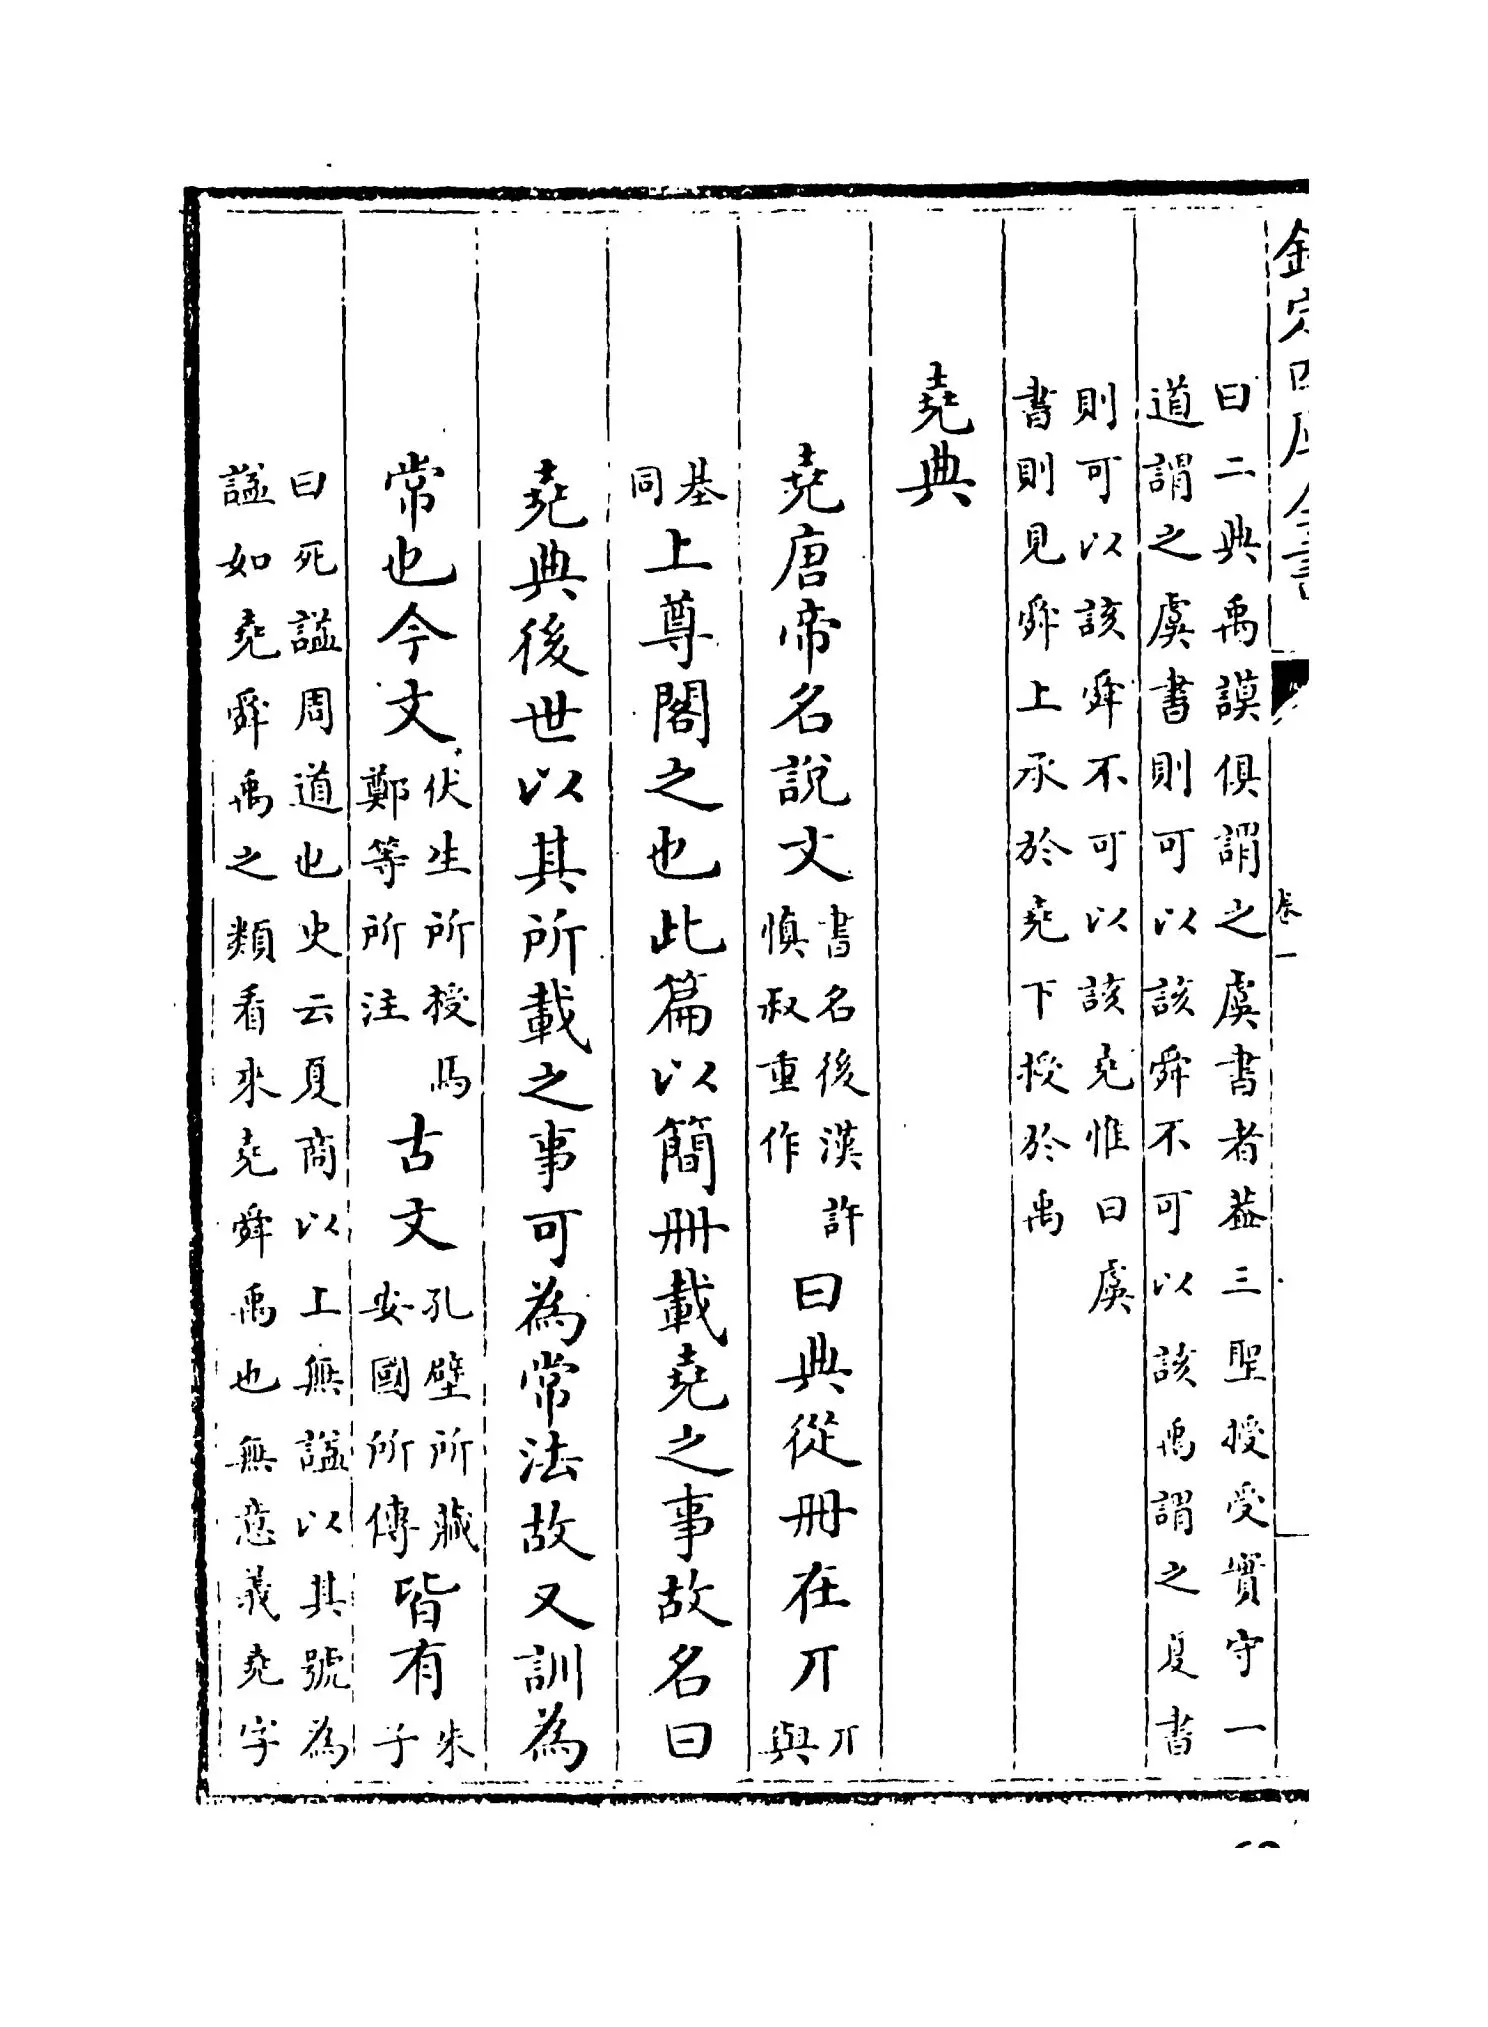 欽定四庫全書
卷一
曰二典禹謨俱謂之虞書者葢三聖授受實守一
道謂之虞書則可以該舜不可以該禹謂之夏書
則可以該舜不可以該堯惟曰虞
書則見舜上承於堯下授於禹
堯典
堯唐帝名說文書名後漢許慎叔重作曰典從冊在丌丌與
基同上尊閣之也此篇以簡冊載堯之事故名曰
堯典後世以其所載之事可為常法故又訓為
常也今文伏生所授馬鄭等所注古文孔壁所藏安國所傳皆有朱子
曰死謚周道也史云夏商以上無謚以其號為
謚如堯舜禹之類看來堯舜禹也無意義堯字